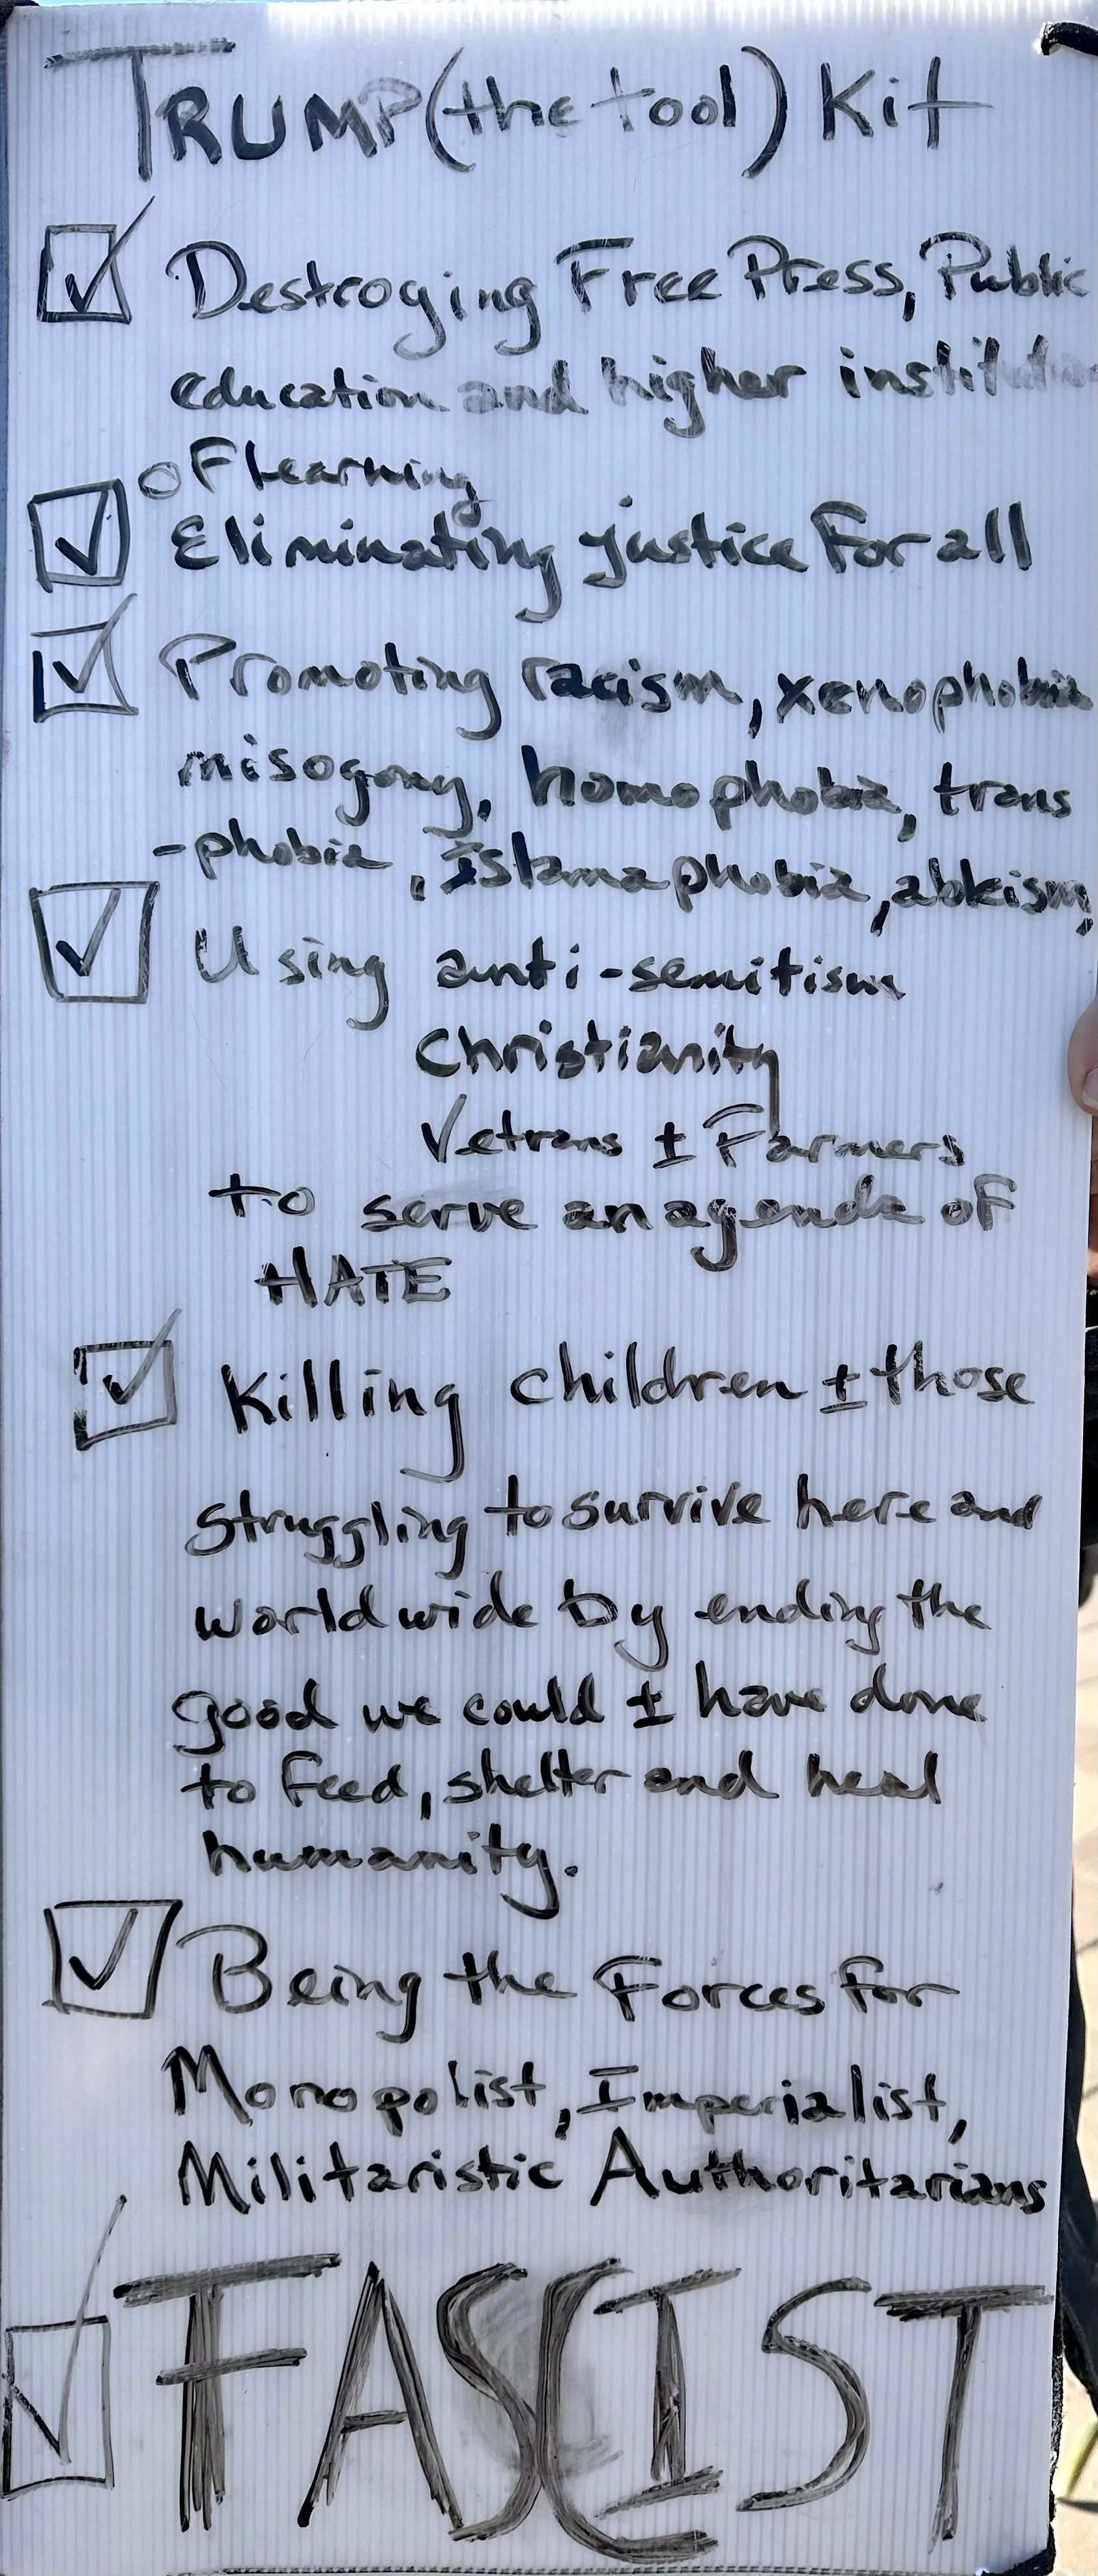 TRUMP (the tool) Kit
Destroying Free Press, Public
education and higher institution
of learning
Eliminating justice for all
Promoting racism, xenophobia
misogony, homophobia, trans
-phobia, Islamaphobia, ableism,
Using anti-semitism
Christianity
Vetrans ± Farmers
to serve an agenda of
HATE
Killing children ± those
struggling to survive here and
worldwide by ending the
good we could ± have done
to feed, shelter and heal
humanity.
Being the Forces for
Monopolist, Imperialist,
Militaristic Authoritarians
FASCIST